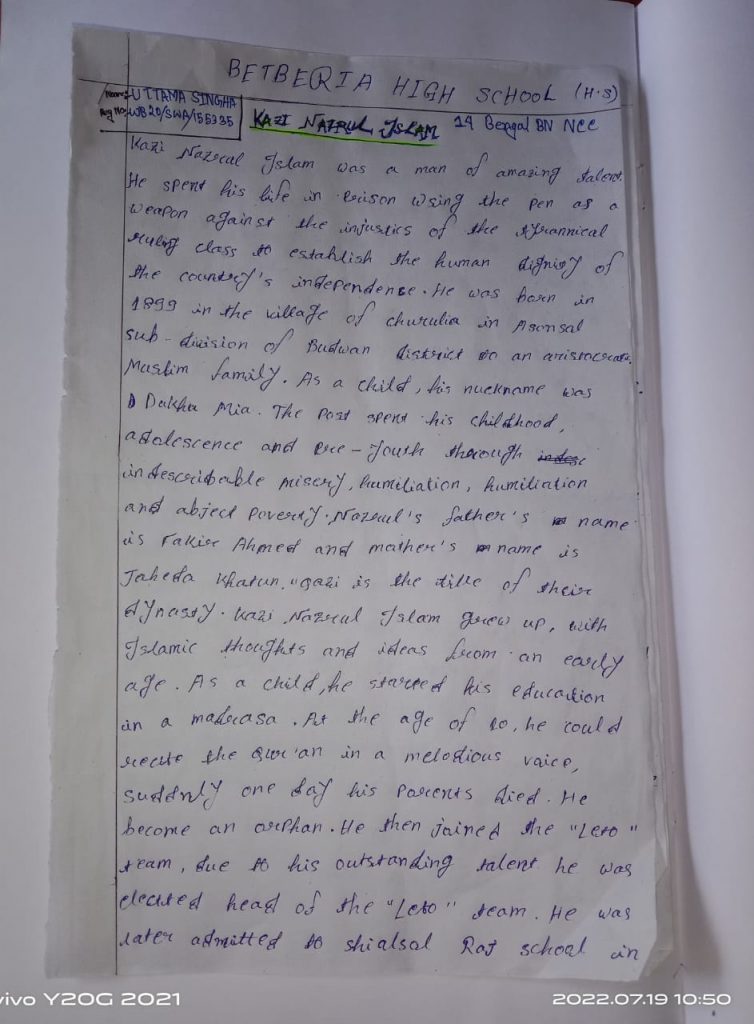 BETBERIA HIGH SCHOOL (H.S)
Name:- UTTAMA SINGHA
Reg No:- WB20/SWA/155335
KAZI NAZRUL ISLAM 14 Bengal BN NCC
Kazi Nazrul Islam was a man of amazing talent.
He spent his life in Prison wsing the pen as a
weapon against the injustics of the tyrannical
ruling class to establish the human dignity of
the country's independence. He was born in
1899 in the village of churulia in Asonsal
sub-division of Budwan district to an aristocratic
Muslim family. As a child, his nuckname was
Dakhu Mia. The Poet spent his childhood,
adolescence and Pre-Youth through
indescribable misery, humiliation, humiliation
and abject Poverty. Nazrul's father's name
is Fakir Ahmed and mather's name is
Jaheda Khatun. "Qazi is the title of their
dynasty. Kazi Nazrul Islam grew up, with
Islamic thoughts and ideas from an early
age. As a child, he started his education
in a madrasa. At the age of 10, he could
recite the Qur'an in a melodious vaice,
suddnly one day his Parents died. He
become an orphan. He then joined the "Leto"
team, due to his outstanding talent he was
elected head of the "Leto" team. He was
later admitted to shialsal Raj school in
vivo Y20G 2021
2022.07.19 10:50